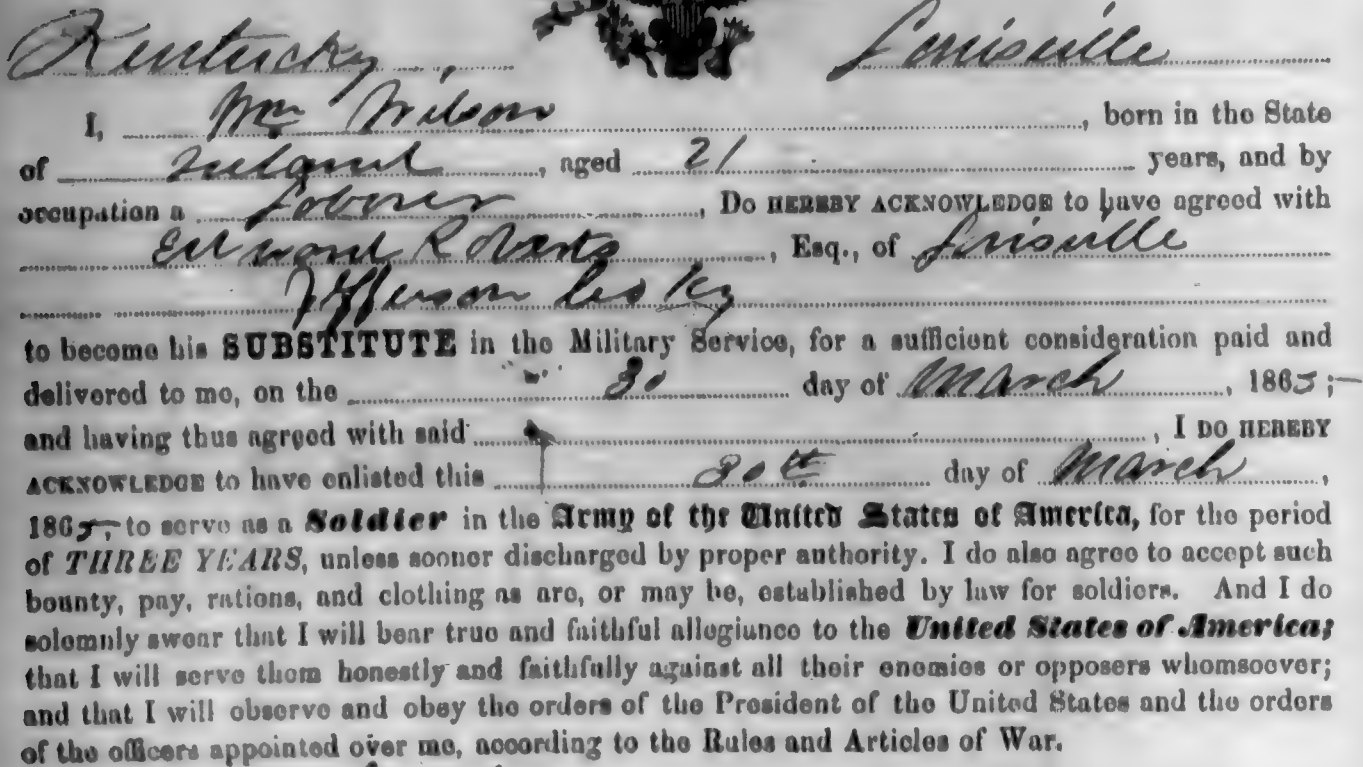 Kentucky Louisville
I, Wm Wilson, born in the State
of Ireland, aged 21 years, and by
occupation a Laborer, Do HEREBY ACKNOWLEDGE to have agreed with
Edward Roberts, Esq., of Louisville
Jefferson Co Ky
to become his SUBSTITUTE in the Military Service, for a sufficient consideration paid and
delivered to me, on the 30 day of March, 1865;—
and having thus agreed with said , I DO HEREBY
ACKNOWLEDGE to have enlisted this 30th day of March,
1865, to serve as a Soldier in the Army of the United States of America, for the period
of THREE YEARS, unless sooner discharged by proper authority. I do also agree to accept such
bounty, pay, rations, and clothing as are, or may be, established by law for soldiers. And I do
solemnly swear that I will bear true and faithful allegiance to the United States of America;
that I will serve them honestly and faithfully against all their enemies or opposers whomsoever;
and that I will observe and obey the orders of the President of the United States and the orders
of the officers appointed over me, according to the Rules and Articles of War.